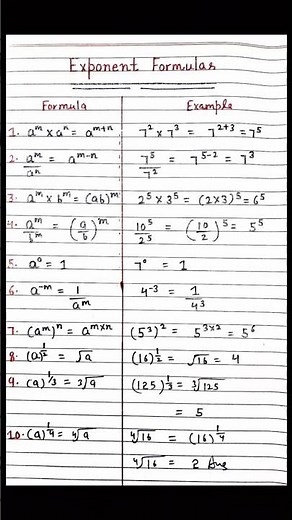 Exponent Formulas
Formula Example
1. a^m × a^n = a^(m+n) 7^2 × 7^3 = 7^(2+3) = 7^5
2. a^m/a^n = a^(m-n) 7^5/7^2 = 7^(5-2) = 7^3
3. a^m × b^m = (ab)^m 2^5 × 3^5 = (2×3)^5 = 6^5
4. a^m/b^m = (a/b)^m 10^5/2^5 = (10/2)^5 = 5^5
5. a^0 = 1 7^0 = 1
6. a^-m = 1/a^m 4^-3 = 1/4^3
7. (a^m)^n = a^(m×n) (5^3)^2 = 5^(3×2) = 5^6
8. (a)^(1/2) = √a (16)^(1/2) = √16 = 4
9. (a)^(1/3) = 3√a (125)^(1/3) = ∛125
= 5
10. (a)^(1/4) = ∜a ∜16 = (16)^(1/4)
∜16 = 2 Ans